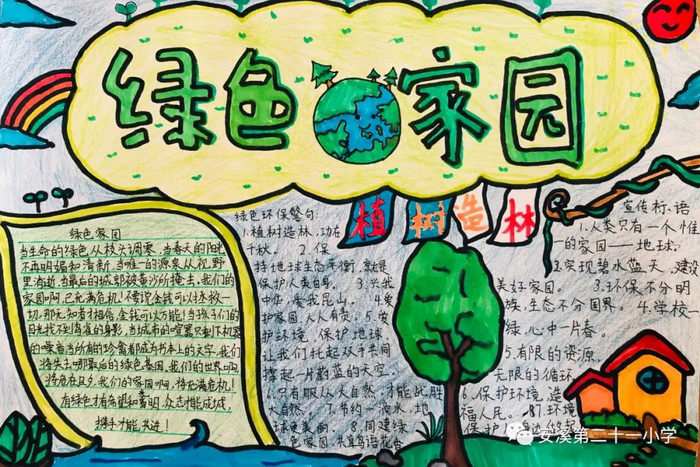 绿色家园
植树造林
绿色家园
当生命的绿色从枝头凋零,当春天的阳光
不再明媚和清新,当唯一的源泉从视野
里消逝,当最后的城郭被春沙所掩去,我们的
家园啊,已充满危机!不要说金钱可以拯救一
切,那无知者才相信,金钱可以万能!当孩子们的
目光找不到海燕的身影,当城市的喧嚣只剩下机器
的噪音,当所有的珍禽都成为书本上的文字,我们
将失去哪最后的绿色基因,我们的世界啊
将危在旦夕,我们的家园啊,将充满危机!
有绿色才有希望和黎明,众志才能成城,
携手才能共进!
绿色环保警句
1.植树造林,功在
千秋。 2.保
持地球生态平衡,就是
保护人类自身。 3.兴我
中华,爱我昆山。 4.爱
护家园,人人有责。 5.爱
护环境,保护地球
让我们托起双手共同
撑起一片蔚蓝的天空
6.只有服从大自然,才能战胜
大自然。 7.节约一滴水,地
球更美丽。 8.同建绿
色家园,共享鸟语花香
宣传标语
1.人类只有一个惟一
的家园——地球。
2.实现碧水蓝天,建设
美好家园。 3.环保不分民
族,生态不分国界。 4.学校一片
绿,心中一片春。
5.有限的资源,
无限的循环
6.保护环境,造
福人民。 8.环境
保护
安溪第二十一小学